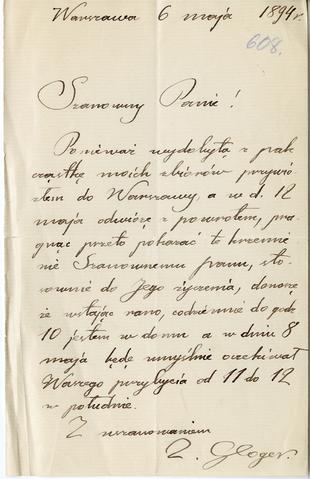 Warszawa 6 maja 1894 r.
608.
Szanowny Panie!
Ponieważ wydobytą z pak
cząstkę moich zbiorów przywio-
złem do Warszawy, a w d. 12
maja odwiozę z powrotem, pra-
gnąc przeto pokazać te krzemie-
nie Szanownemu panu, sto-
sownie do Jego życzenia, donoszę
że wstając rano, codziennie do godz
10 jestem w domu a w dniu 8
maja będę umyślnie oczekiwał
Waszego przybycia od 11 do 12
w południe.
Z uszanowaniem
Z. Gloger.